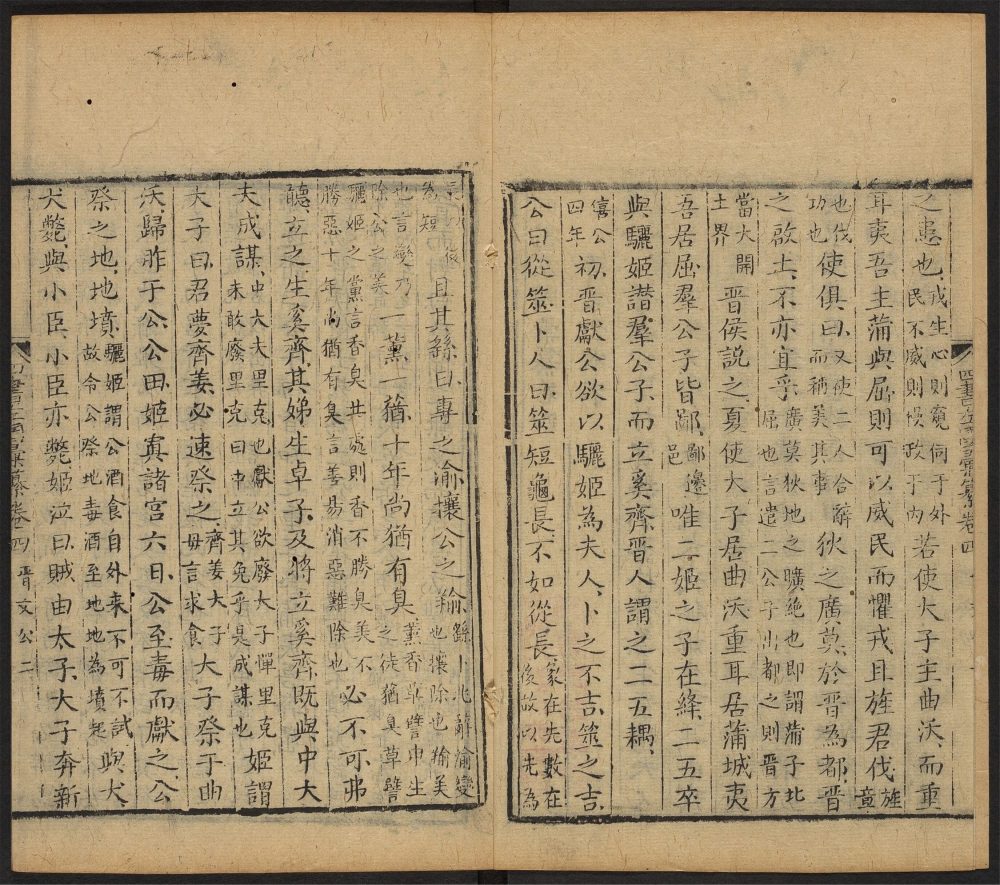 之患也戎生心則窺伺于外民不威則慢政于内若使大子主曲沃而重
耳夷吾主蒲與屈則可以威民而懼戎且旌君伐旌章
也伐功也使俱曰又使二人合辭而稱美其事狄之廣莫於晉為都晉
之啟土不亦宜乎廣莫狄地之曠絶也即謂蒲子北屈也言遣二公子出都之則晉方
當大開土界晉侯說之夏使大子居曲沃重耳居蒲城夷
吾居屈羣公子皆鄙鄙邊邑唯二姬之子在絳二五卒
與驪姬譖羣公子而立奚齊晉人謂之二五耦
僖公四年初晉獻公欲以驪姬為夫人卜之不吉筮之吉
公曰從筮卜人曰筮短龜長不如從長象在先數在後故以先為
為短且其繇曰專之渝攘公之羭繇卜兆辭渝變
也攘除也羭美也言變乃除公之美一薰一蕕十年尚猶有臭薰香草譬申生蕕臭草譬
驪姬之黨言香臭共處則香不勝臭美不勝惡十年尚猶有臭言善易消惡難除也必不可弗
聽立之生奚齊其娣生卓子及將立奚齊既與中大
夫成謀中大夫里克也獻公欲廢大子憚里克未敢廢里克曰中立其免乎是成謀也姬謂
大子曰君夢齊姜必速祭之齊姜大子母言求食大子祭于曲
沃歸胙于公公田姬寘諸宮六日公至毒而獻之公
祭之地地墳驪姬謂公酒食自外来不可不試故令公祭地毒酒至地地為墳起與犬
犬斃與小臣小臣亦斃姬泣曰賊由太子大子奔新
卷四 晉文公 二